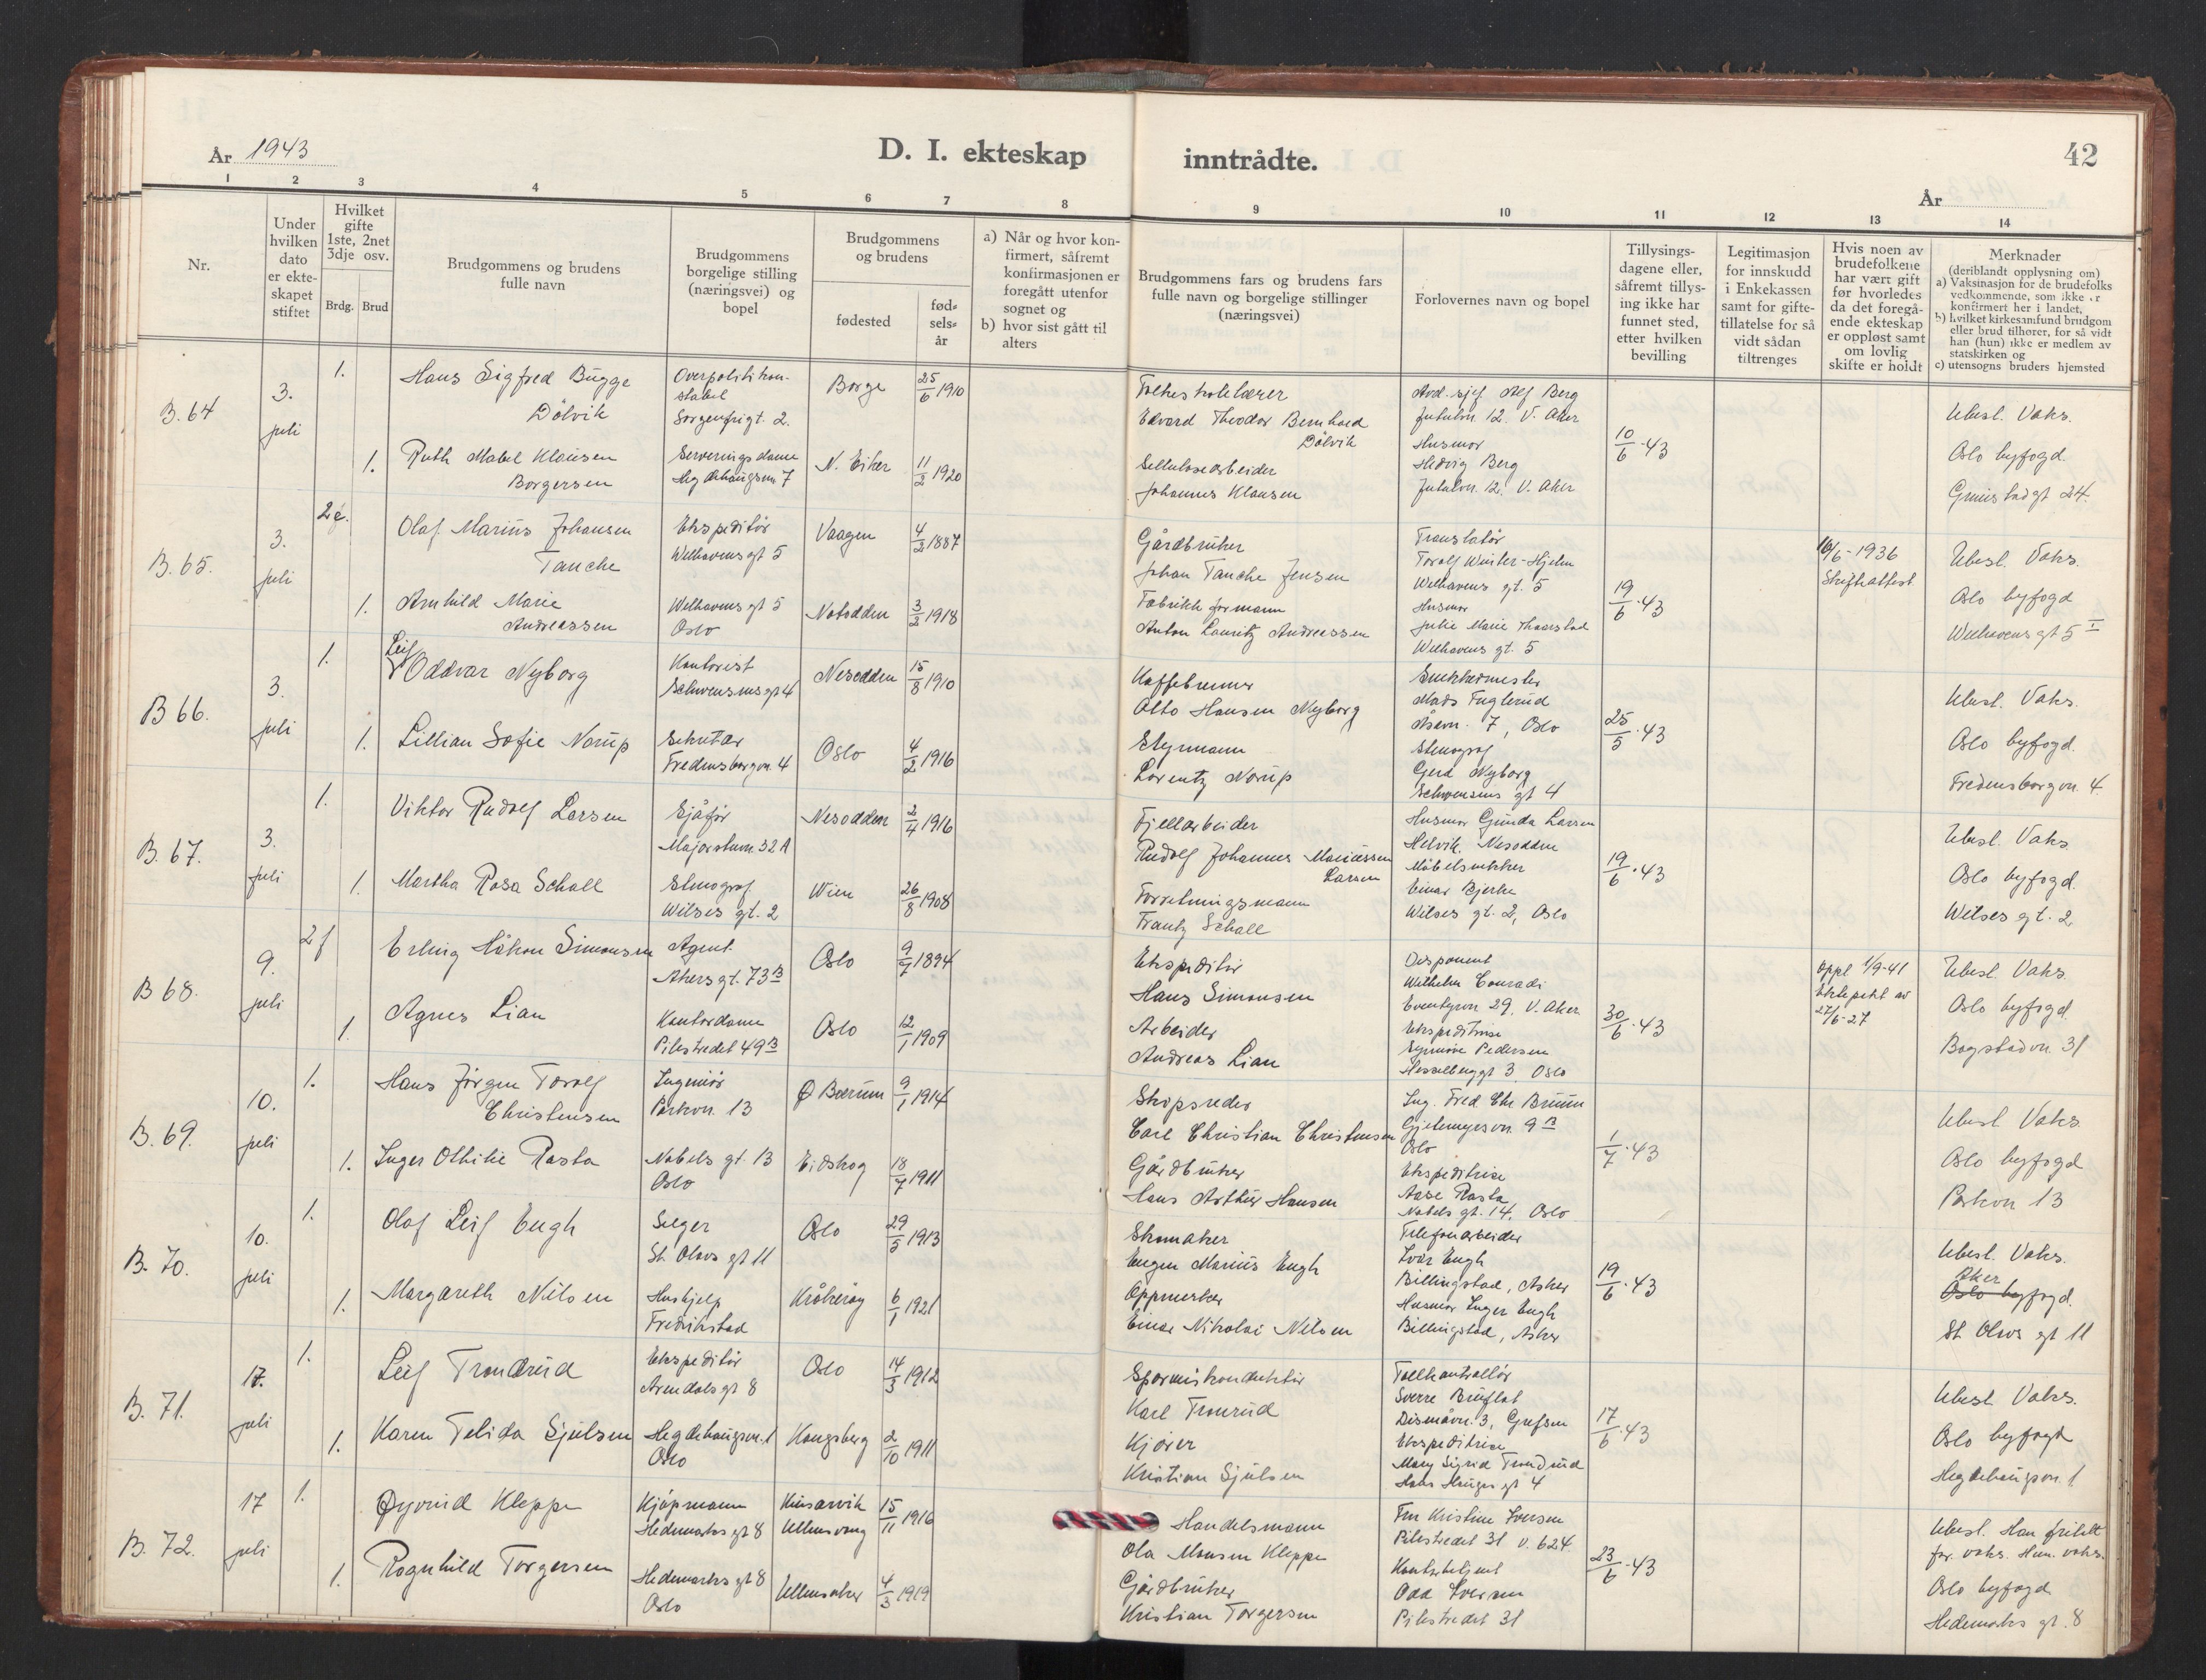 År 1943
D. I. ekteskap inntrådte.
42
År
1 2 3 4 5 6 7 8 9 10 11 12 13 14
Nr.
Under hvilken dato er ekte-skapet stiftet
Hvilket gifte 1ste, 2net 3dje osv.
Brdg. Brud
Brudgommens og brudens fulle navn
Brudgommens borgelige stilling (næringsvei) og bopel
Brudgommens og brudens
fødested
fød-sels-år
a) Når og hvor kon-firmert, såfremt konfirmasjonen er foregått utenfor sognet og
b) hvor sist gått til alters
Brudgommens fars og brudens fars fulle navn og borgelige stillinger (næringsvei)
Forlovernes navn og bopel
Tillysings-dagene eller, såfremt tillys-ing ikke har funnet sted, etter hvilken bevilling
Legitimasjon for innskudd i Enkekassen samt for gifte-tillatelse for så vidt sådan tiltrenges
Hvis noen av brudefolkene har vært gift før hvorledes da det foregå-ende ekteskap er oppløst samt om lovlig skifte er holdt
Merknader (deriblandt opplysning om)
a) Vaksinasjon for de brudefolks vedkommende, som ikke er konfirmert her i landet,
b) hvilket kirkesamfund brudgom eller brud tilhører, for så vidt han (hun) ikke er medlem av statskirken og
c) utensogns bruders hjemsted
B. 64
3. juli
1.
Hans Sigfred Bugge
Dölvik
Overpolitikon-
stabel
Sorgenfrigt. 2.
Borge
25/6 1910
1.
Ruth Mabel Klausen
Borgersen
Serveringsdame
Hegdehaugsvn. 7
N. Eiker
11/2 1920
Folkeskolelærer
Edvard Theodor Bernhard
Dölvik
Sellulosearbeider
Johannes Klausen
Avd. sjef Alf Berg
Jutulvn. 12. V. Aker
Husmor
Hedvig Berg
Jutulvn. 12. V. Aker
10/6 ·43
Ubesl. Vaks.
Oslo byfogd.
Gruisladgt 24.
B. 65.
3. juli
2e.
Olaf Marius Johansen
Tanche
Ekspeditør
Welhavensgt 5
Vaagen
4/2 1887
1.
Arnhild Marie
Andreassen
Welhavensgt 5
Oslo
Notodden
3/2 1918
Gårdbruker
Johan Tanche Jensen
Fabrikkformann
Anton Lauritz Andreassen
Translatør
Torolf Winter-Hjelm
Welhavens gt. 5
Husmor
Julie Marie Thaarstad
Welhavens gt. 5
19/6 ·43
10/6-1936
Skifteattest
Ubesl. Vaks.
Oslo byfogd
Welhavensgt 5 I
B 66.
3. juli
1.
Leif
Oddvar Nyborg
Kontorist
Schwensensgt 4
Nesodden
15/8 1910
1.
Lillian Sofie Norup
Sekretær
Fredensborgvn. 4
Oslo
4/2 1916
Kaffebrenner
Otto Hansen Nyborg
Styrmann
Lorentz Norup
Snekkermester
Mads Fuglerud
Åsevn. 7, Oslo
Stenograf
Gerd Nyborg
Schwensens gt 4
25/5 ·43
Ubesl. Vaks.
Oslo byfogd.
Fredensborgvn. 4.
B. 67.
3. juli
1.
Viktor Rudolf Larsen
Sjåfør
Majorstuvn. 32 A
Nesodden
2/4 1916
1.
Martha Rosa Schall
Stenograf
Wilses gt. 2
Wien
26/8 1908
Fjellarbeider
Rudolf Johannes Mariussen
Larsen
Forretningsmann
Frantz Schall
Husmor Gunda Larsen
Helvik, Nesodden
Møbelsnekker
Einar Bjerke
Wilses gt. 2, Oslo
19/6 ·43
Ubesl. Vaks
Oslo byfogd.
Wilses gt. 2
B 68.
9. juli
2f
Erling Håkon Simonsen
Agent
Akersgt. 73 B
Oslo
9/7 1894
1.
Agnes Lian
Kontordame
Pilestredet 49 B
Oslo
12/1 1909
Ekspeditør
Hans Simonsen
Arbeider
Andreas Lian
Disponent
Wilhelm Conradi
Eventyrvn 29, V. Aker.
Ekspeditrise
Synnøve Pedersen
Hesselberggt 3, Oslo
30/6 ·43
Oppl 1/9-41
Ektepakt av
27/6-27
Ubesl. Vaks.
Oslo byfogd.
Bogstadvn. 31
B. 69.
10. juli
1.
Hans Jørgen Torolf
Christensen
Ingeniør
Parkvn. 13
Ø Bærum
9/1 1914
1.
Inger Othilie Rasta
Nobels gt. 13
Oslo
Eidskog
18/7 1911
Skipsreder
Carl Christian Christensen
Gårdbruker
Hans Arthur Hansen
Ing. Fred Chr Bruun
Gjetemyrsvn. 9 B
Oslo
Ekspeditrise
Aase Rasta
Nobels gt. 14, Oslo
1/7 ·43
Ubesl Vaks
Oslo byfogd
Parkvn 13
B. 70.
10. juli
1.
Olaf Leif Engh
Selger
St. Olavs gt 11
Oslo
29/5 1913
1.
Margareth Nilsen
Hushjelp
Fredrikstad
Kråkerøy
6/1 1921
Skomaker
Eugen Marius Engh
Oppmerker
Einar Nikolai Nilsen
Telefonarbeider
Ivar Engh
Billingstad, Asker
Husmor Inger Engh
Billingstad, Asker
19/6 ·43
Ubesl. Vaks.
Aker
Oslo byfogd.
St. Olavs gt 11
B. 71.
17. juli
1.
Leif Trondrud
Ekspeditør
Arendalsgt 8
Oslo
14/3 1912
1.
Karen Telida Sjulsen
Hegdehaugsvn. 1
Oslo
Kongsberg
2/10 1911
Sporveiskonduktør
Karl Tronrud
Kjører
Kristian Sjulsen
Tollkontrollør
Sverre Bruflat
Disenåvn. 3, Grefsen
Ekspeditrise
Mary Sigrid Trondrud
Hans Hauges gt 4
17/6 ·43
Ubesl Vaks.
Oslo byfogd
Hegdehaugsvn. 1
B. 72.
17 juli
1.
Øyvind Kleppe
Kjøpmann
Hedemarks gt 8
Kinsarvik
Ullensvang
15/11 1916
1.
Ragnhild Torgersen
Hedemarks gt 8
Oslo
Ullensaker
4/3 1919
Handelsmann
Ola Monsen Kleppe
Gårdbruker
Kristian Torgersen
Fru Kristine Iversen
Pilestredet 31 V. 624.
Kontorbetjent
Odd Iversen
Pilestredet 31
23/6 ·43
Ubesl. Han fritatt
for vaks. Hun. vaks.
Oslo byfogd
Hedemarks gt. 8